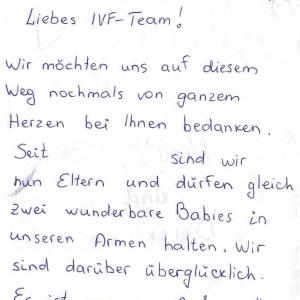 Liebes IVF-Team!
Wir möchten uns auf diesem
Weg nochmals von ganzem
Herzen bei Ihnen bedanken.
Seit sind wir
nun Eltern und dürfen gleich
zwei wunderbare Babies in
unseren Armen halten. Wir
sind darüber überglücklich.
Es ist